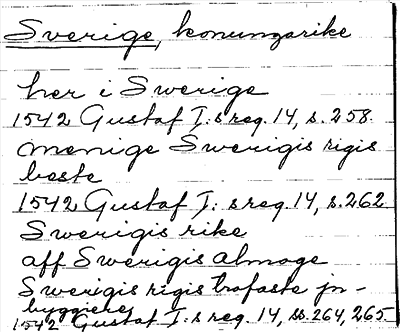 Sverige, konungarike
her i Swerige
1542 Gustaf I:s reg. 14, s. 258.
menige Swerigis rigis
beste
1542 Gustaf I:s reg. 14, s. 262
Swerigis rike
aff Swerigis almoge
Swerigis rigis trofaste jn-
byggiere
1542 Gustaf I:s reg. 14, ss. 264, 265